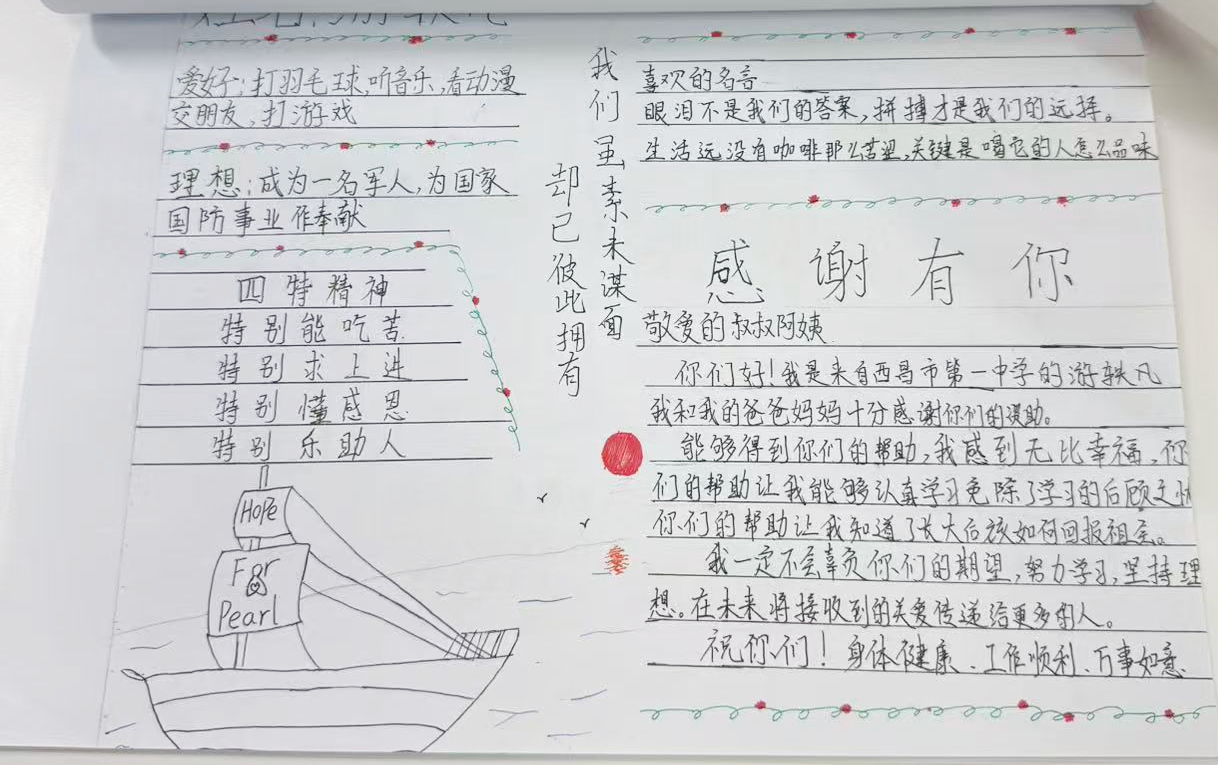 爱好：打羽毛球，听音乐，看动漫
交朋友，打游戏
理想：成为一名军人，为国家
国防事业作奉献
四特精神
特别能吃苦
特别求上进
特别懂感恩
特别乐助人
Hope
For
Pearl
我们虽素未谋面
却已彼此拥有
喜欢的名言
眼泪不是我们的答案，拼搏才是我们的选择。
生活远没有咖啡那么苦涩，关键是喝它的人怎么品味
感谢有你
敬爱的叔叔阿姨
你们好！我是来自西昌市第一中学的游轶凡
我和我的爸爸妈妈十分感谢你们的援助。
能够得到你们的帮助，我感到无比幸福，你
们的帮助让我能够认真学习免除了学习的后顾之忧
你们的帮助让我知道了长大后该如何回报祖国。
我一定不会辜负你们的期望，努力学习，坚持理
想。在未来将接收到的关爱传递给更多的人。
祝你们！身体健康、工作顺利、万事如意